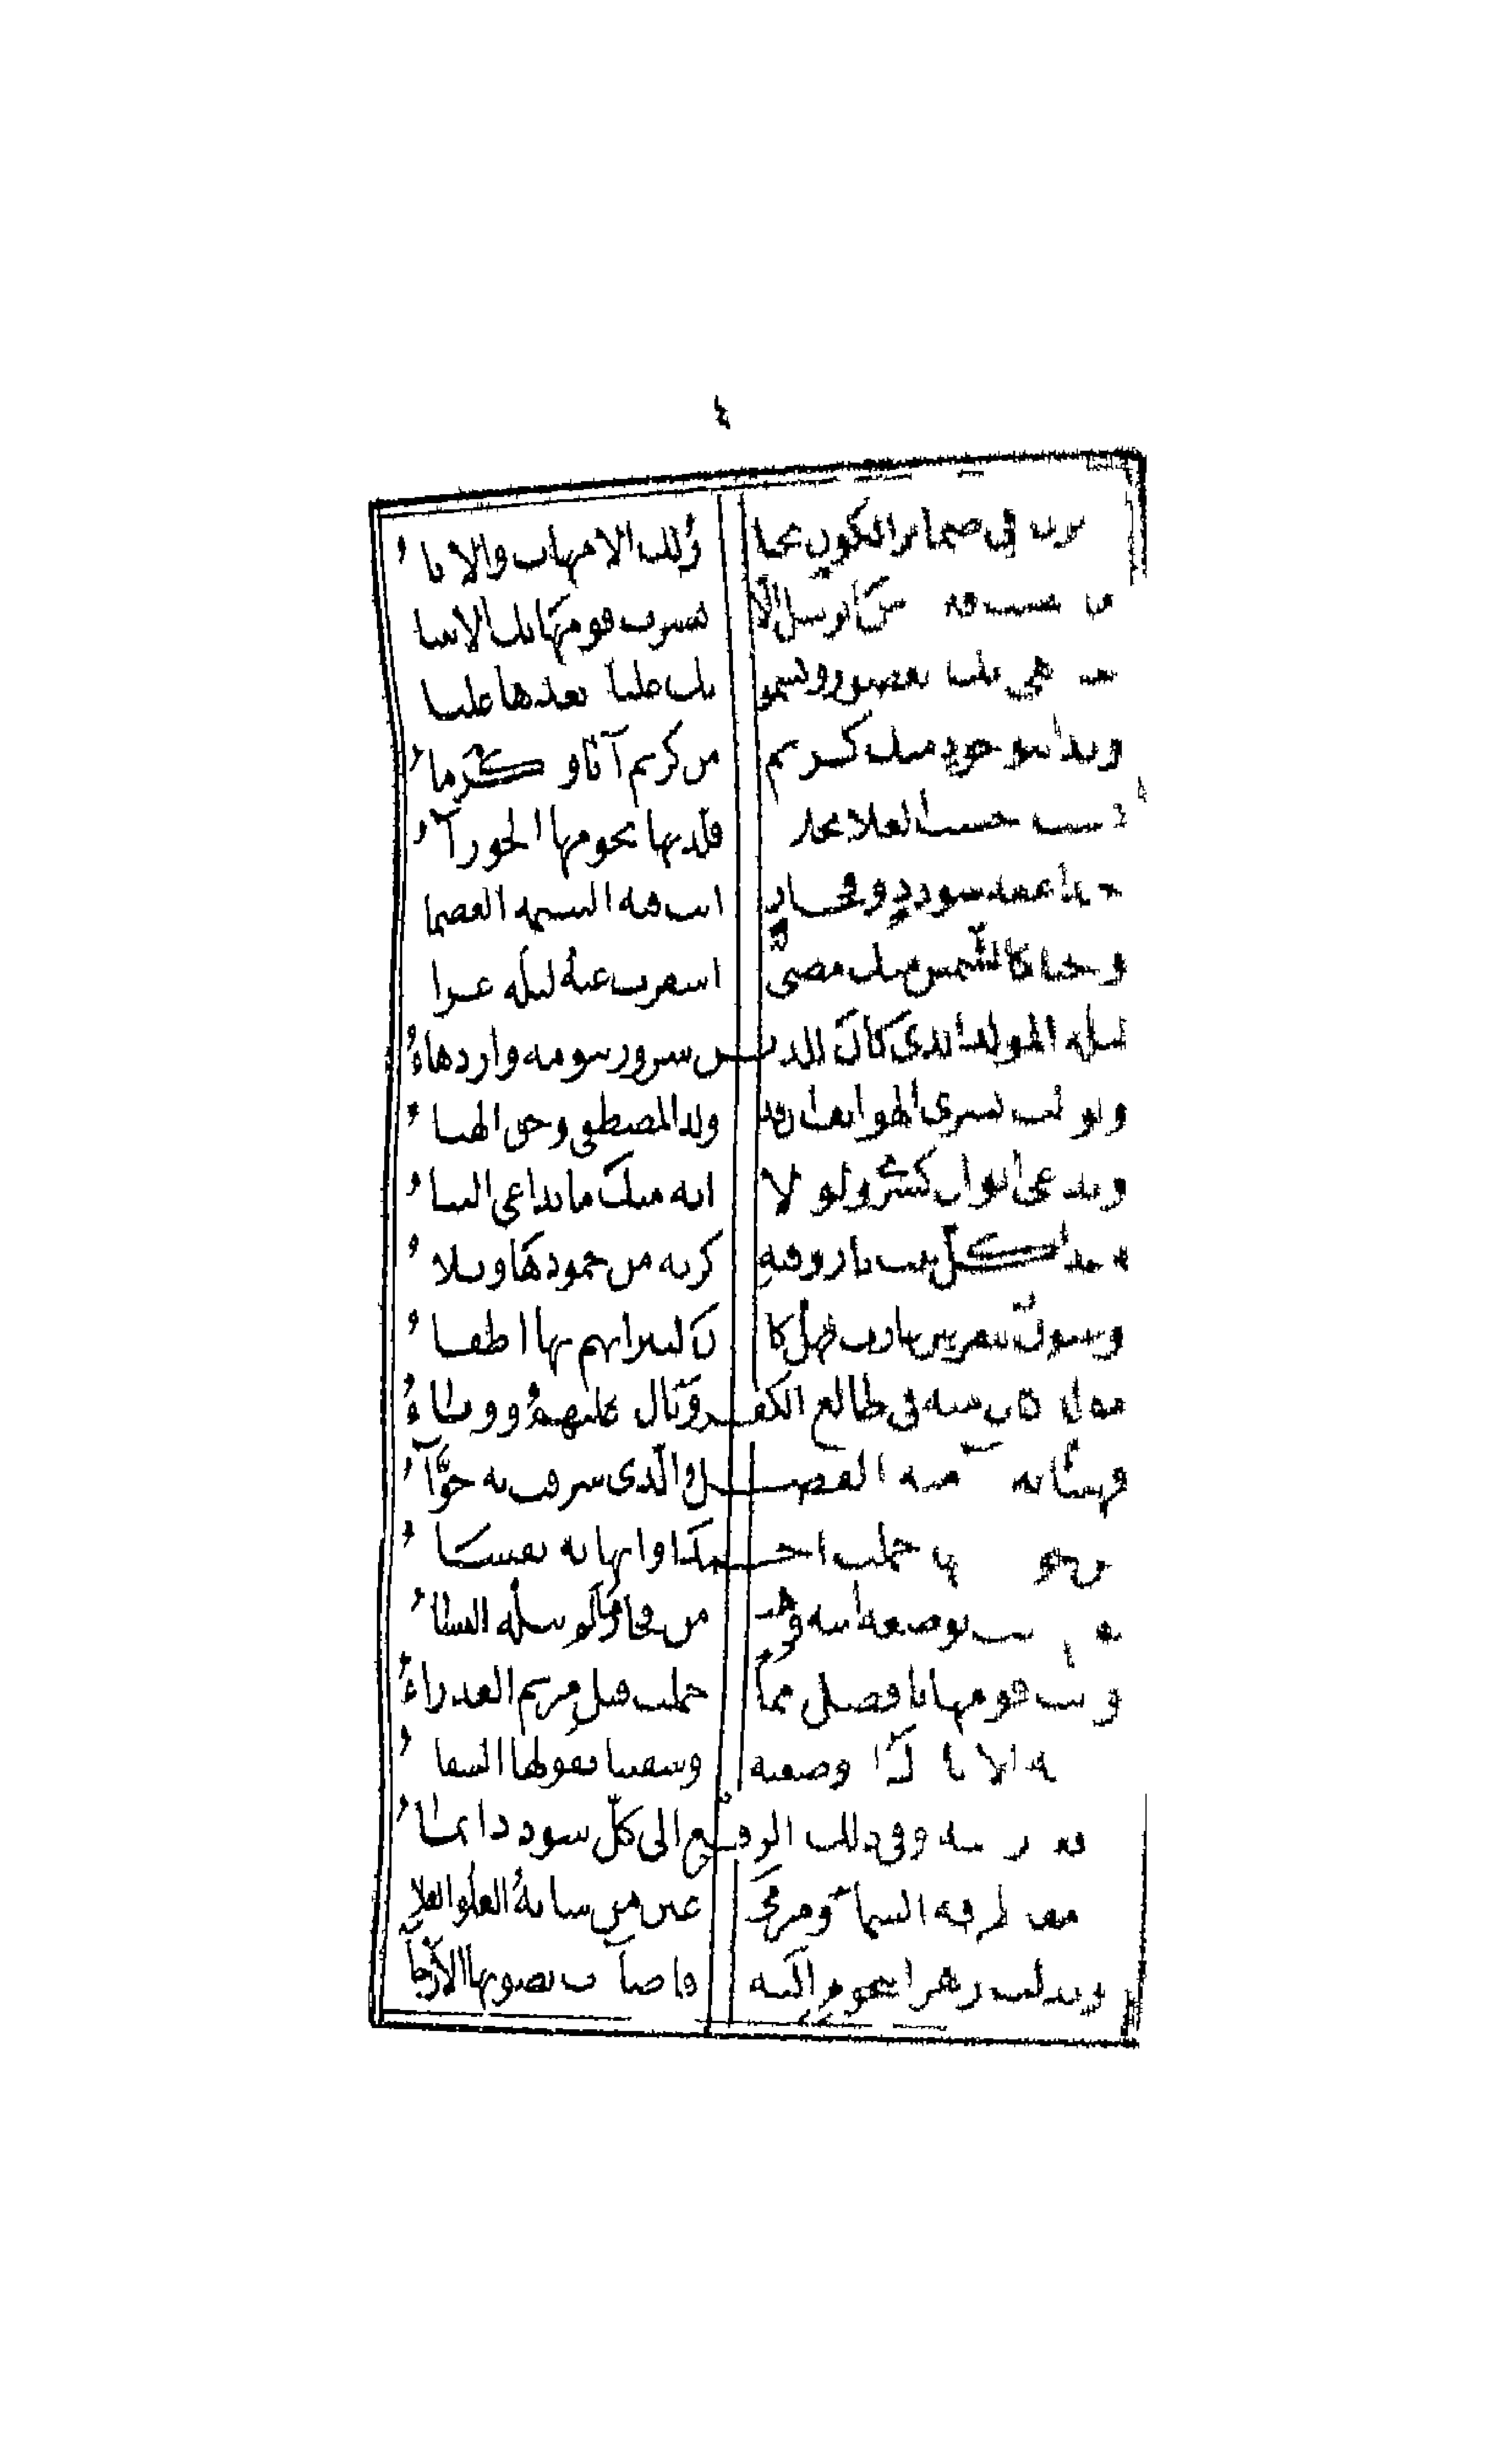 ٤
في ضمائر الكون تختا ر لك الامهات والابا ء
الرسل الا بشرت قومها بك الانبيا
بك العصور وتسمو بك عليا بعدها عليا
وبدا للوجود منك كريم من كريم آباو كرما ء
نسب تحسب العلا بحلا قلدتها نجومها الجوزآ ء
حبذا عقد سودد وفخار انت فيه اليتيمه العصما
ومحيا كالشمس منك مضئ اسفرت عنه ليله غرا
ليله المولد الذى كان للديـن سرور بيومه وازدهاء
وتوالت بشرى الهواتف ان قد ولد المصطفى وحق الهنا ء
وتداعى ايوان كسرى ولولا ايه منك ما تداعى البنا ء
وغدا كل بيت نار وفيه كربه من خمودها وبلا ء
وعيون للفرس غارت فهل كا ن لنيرانهم بها اطفا ء
مولد كان منه فى طالع الكفـر وبال عليهم ووباء
فهنيئا به لآمنه الفضـل الذى شرفت به حوّآ ء
حملت احـمد او انها به نفسا ء
بوضعه ابنه وهب من فخار مالم تنله النسا ء
وأتت قومها بافضل مما حملت قبل مريم العذراء
وضعته وشفتنا بقولها الشفا ء
وفى ذلك الرفـع الى كل سودد ايما ء
طرفه السما ومرمى عين من شانه العلو العلا
وتدلت زهر النجوم اليه فاضآت بضوئها الارجآ